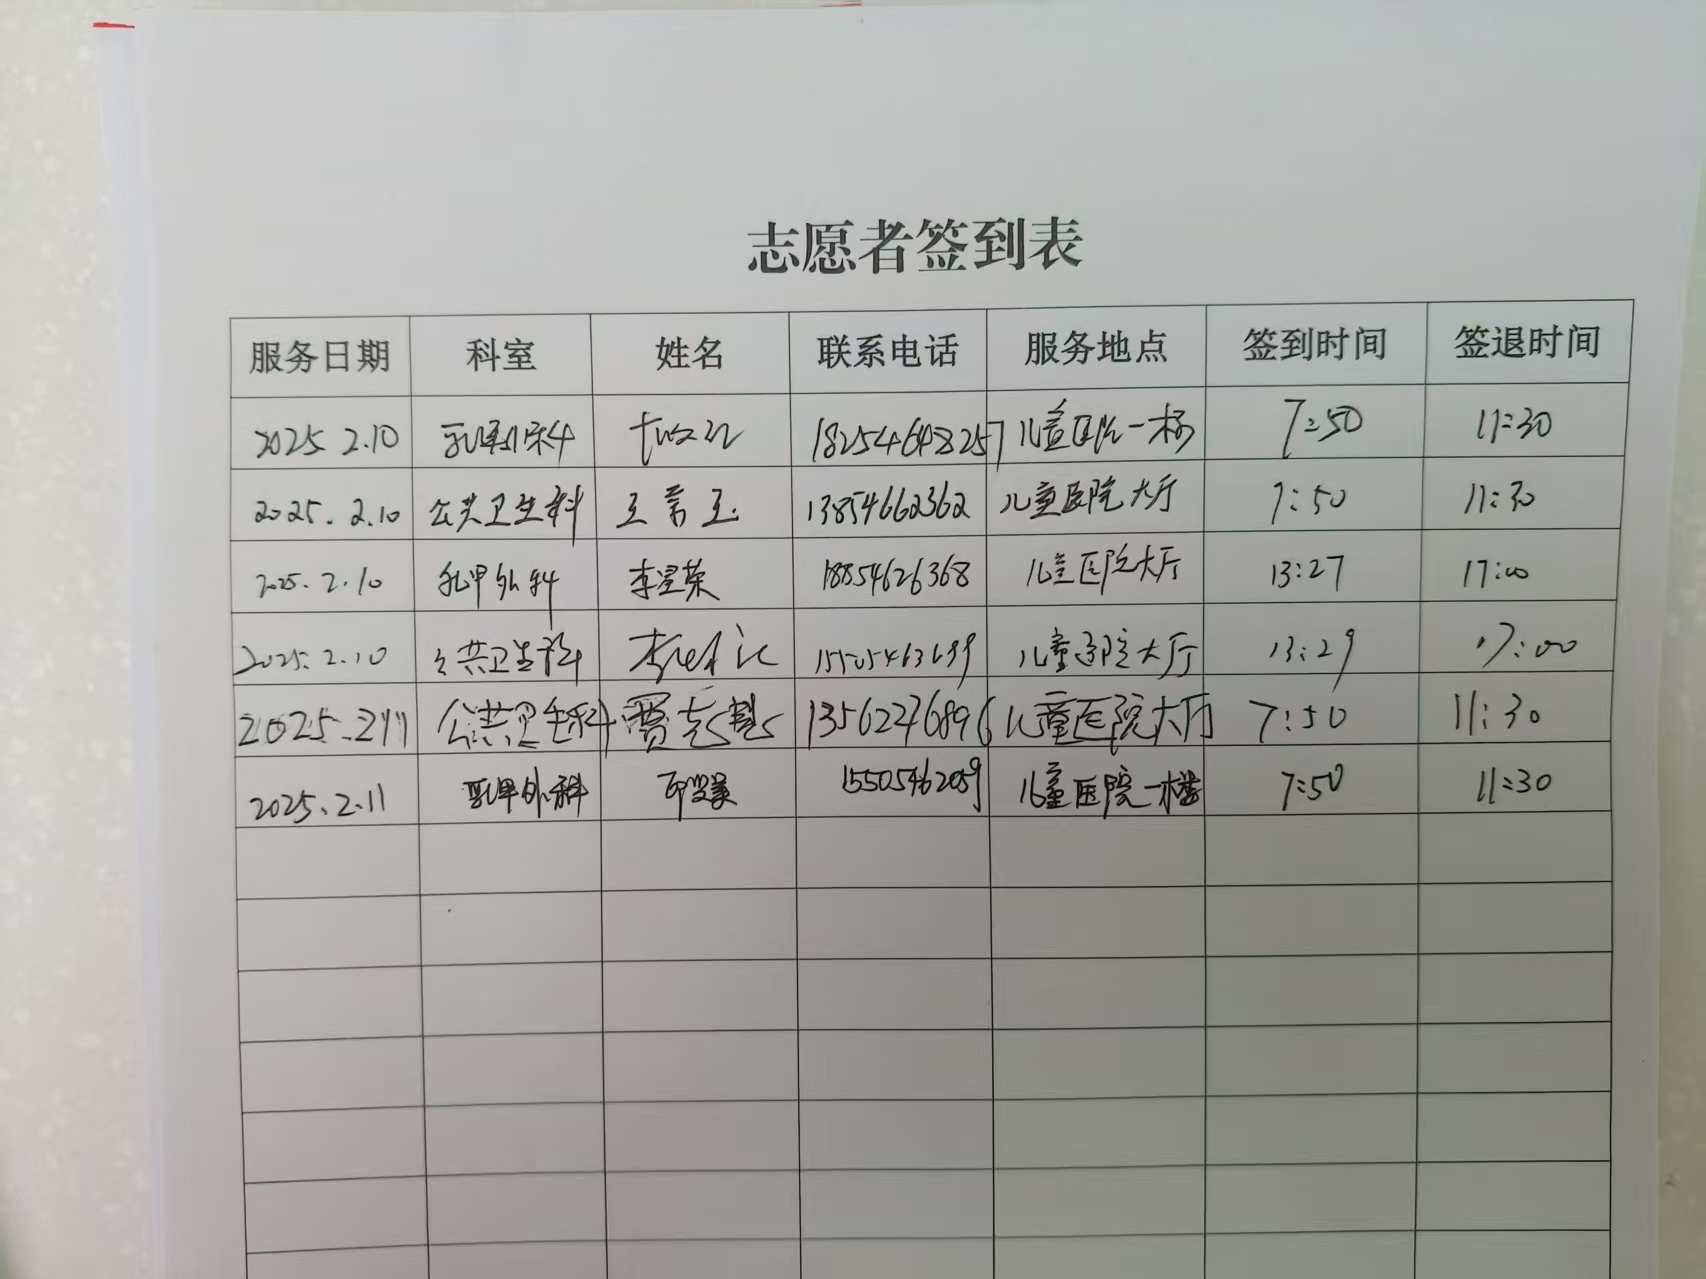 志愿者签到表
服务日期 科室 姓名 联系电话 服务地点 签到时间 签退时间
2025.2.10 18254648257 儿童医院一楼 7:50 11:30
2025.2.10 公共卫生科 13854662362 儿童医院大厅 7:50 11:30
2025.2.10 乳甲外科 李星荣 18854626368 儿童医院大厅 13:27 17:00
2025.2.10 公共卫生科 儿童医院大厅 13:29 17:00
2025.2.11 公共卫生科 13562276896 儿童医院大厅 7:50 11:30
2025.2.11 乳甲外科 15505462059 儿童医院一楼 7:50 11:30